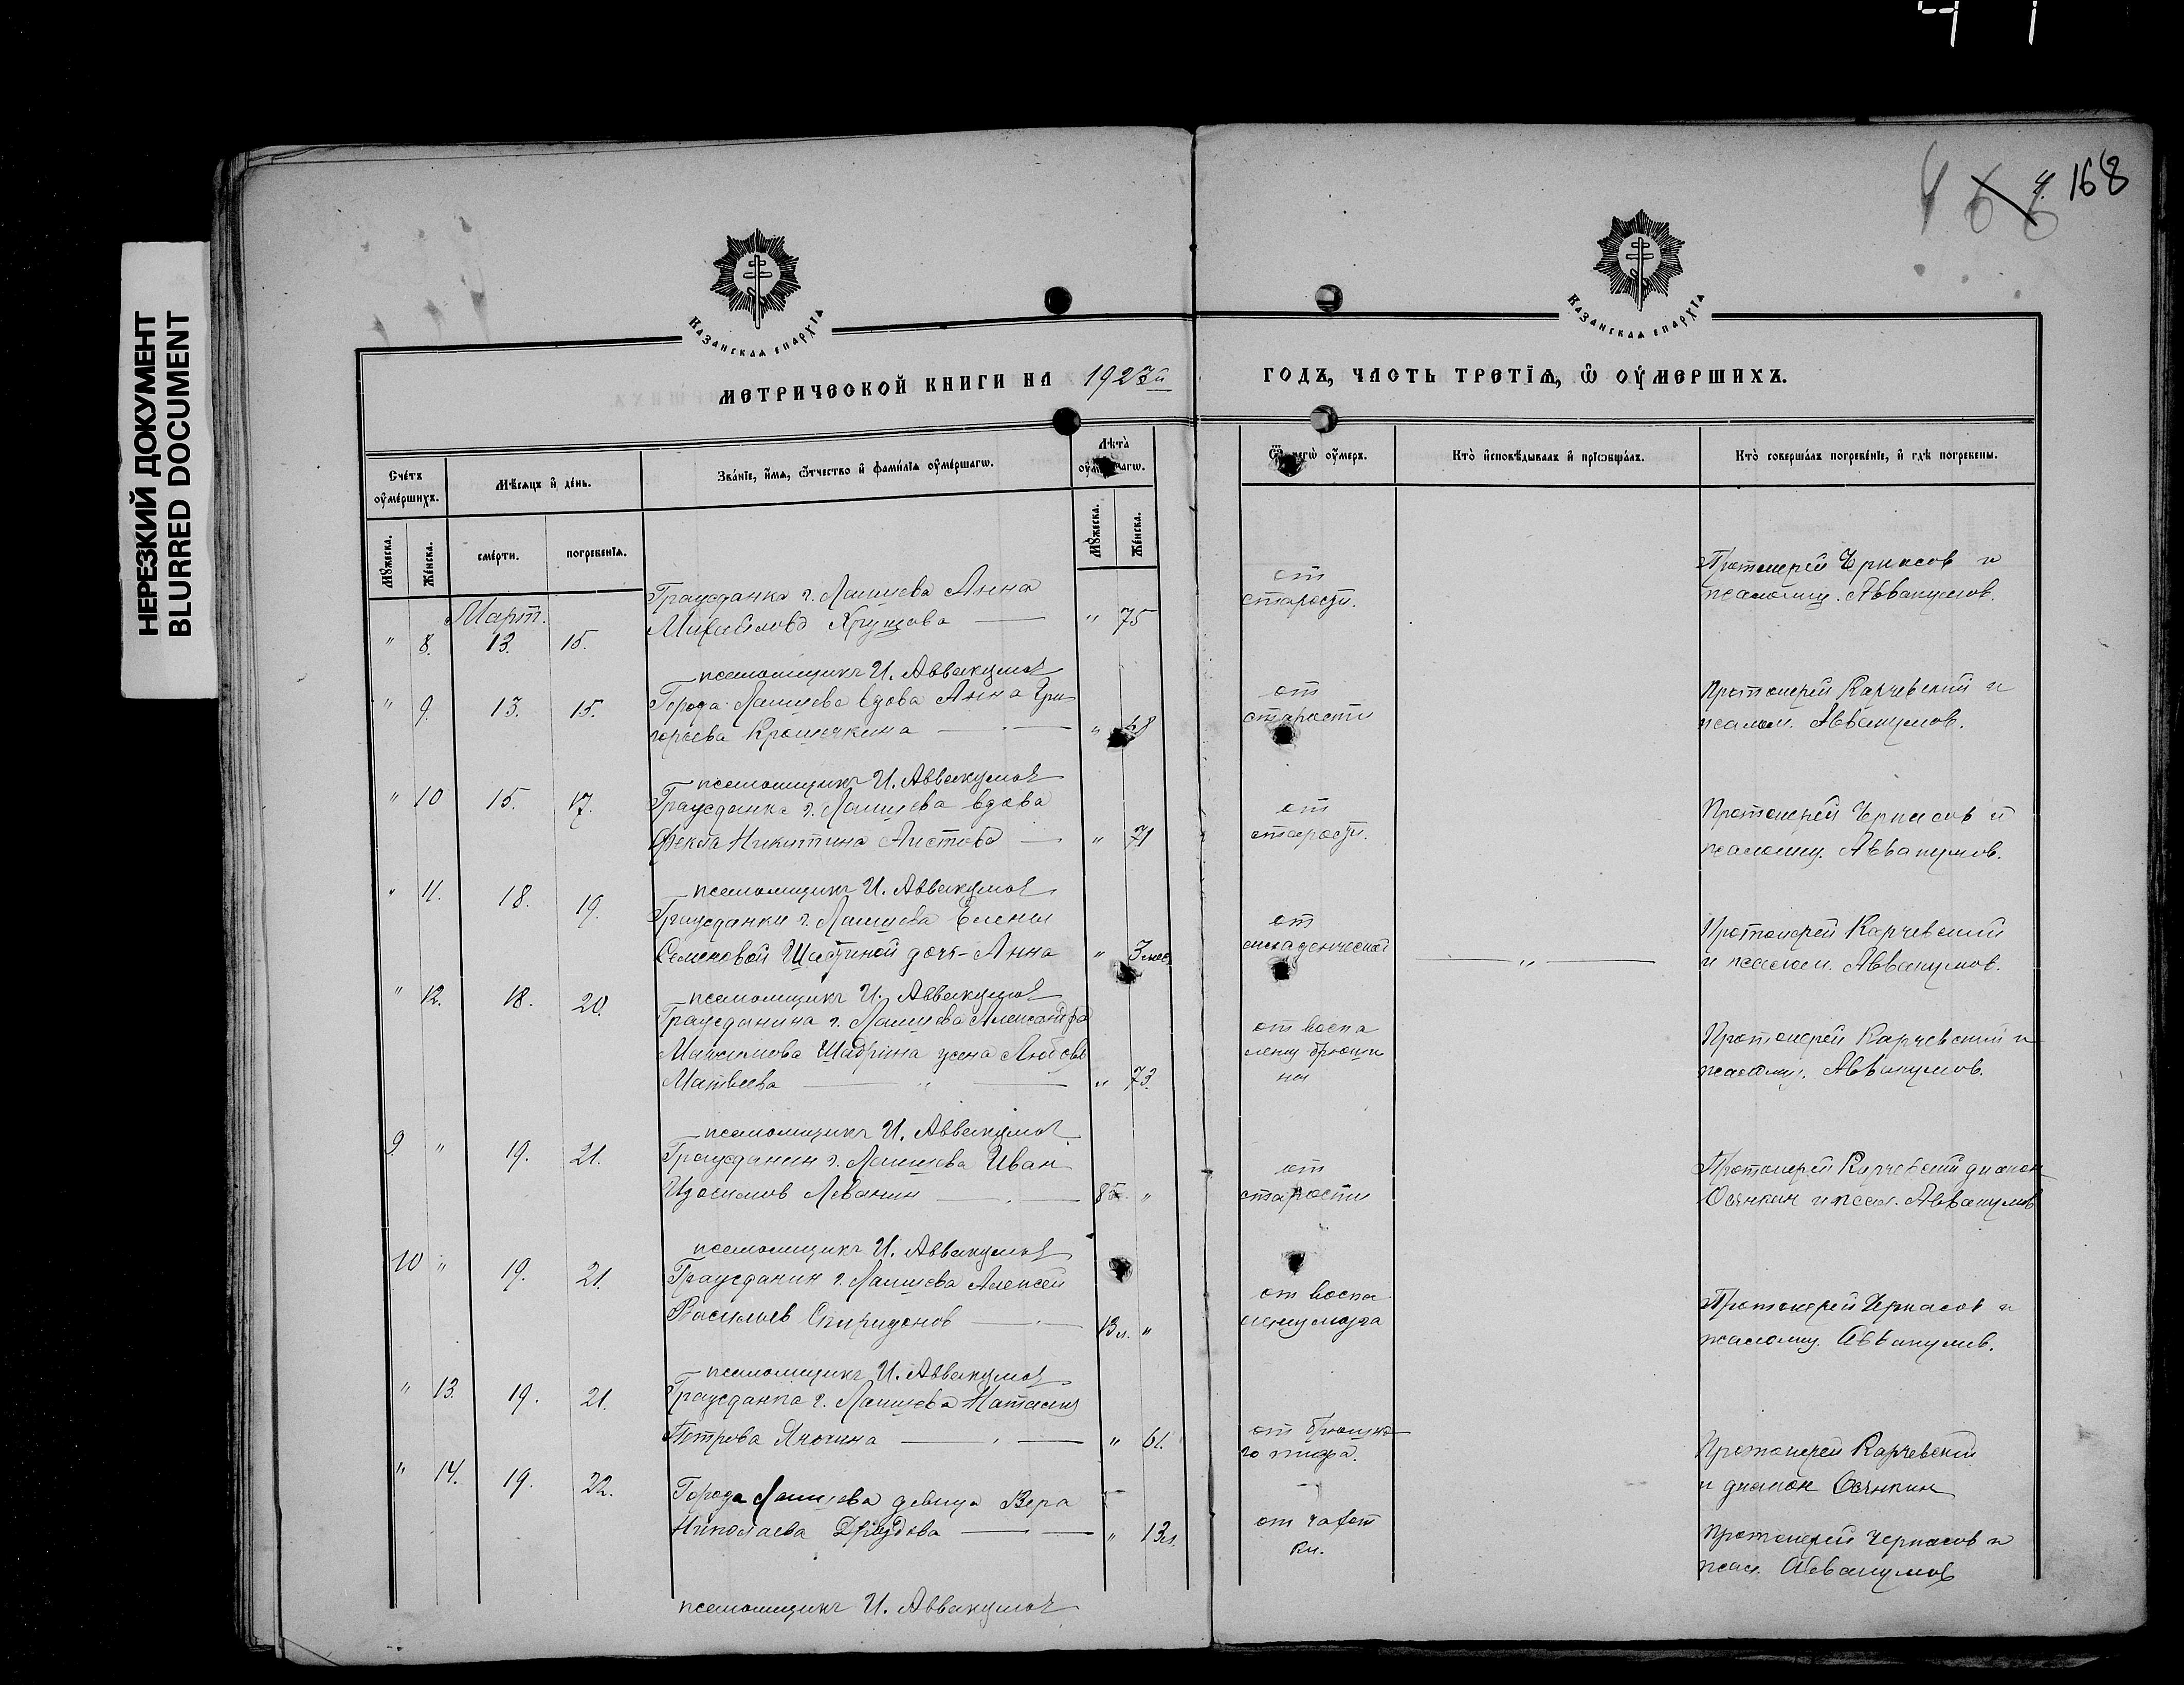 НЕРЕЗКИЙ ДОКУМЕНТ
BLURRED DOCUMENT
168
Казанская епархїѧ
Казанская епархїѧ
МЕТРИЧЕСКОЙ КНИГИ НА 1923й
ГОДЪ, ЧАСТЬ ТРЕТЇѦ, Ѿ ОУМЕРШИХЪ.
Счетъ оумершихъ.
Мѣсяцъ и день.
Званїе, имѧ, ѿтчество и фамилїѧ оумершагѡ.
Лѣта оумершагѡ.
Ѿ чегѡ оумеръ.
Кто исповѣдывалъ и прїѡбщалъ.
Кто совершалъ погребенїе, и гдѣ погребены.
Мужеска.
Женска.
смерти.
погребенїѧ.
Мужеска.
Женска.
Март.
" 8. 13. 15. Гражданка г. Лаишева Анна
Михайлова Хрущова — " 75
от
старости.
Протоиерей Черкасов и
псаломщ. Аввакумов.
псаломщикъ И. Аввакумов
" 9. 13. 15. Города Лаишева вдова Анна Гри-
горьева Крошечкина — " 48
от
старости
Протоиерей Карчевский и
псалом. Аввакумов.
псаломщикъ И. Аввакумов
" 10 15. 17. Гражданка г. Лаишева вдова
Фекла Никитина Аистова — " 71
от
старости.
Протоиерей Черкасов и
псаломщ. Аввакумов.
псаломщикъ И. Аввакумов
" 11. 18. 19. Гражданки г. Лаишева Елены
Семеновой Шастиной дочь - Анна " 3 мес.
от
младенческой
— " —
Протоиерей Карчевский
и псалом. Аввакумов.
псаломщикъ И. Аввакумов
" 12. 18. 20. Гражданина г. Лаишева Александра
Максимова Шадрина жена Любовь
Матвеева — " — " 73.
от воспа
лены брюши
ны
Протоиерей Карчевский и
псаломщ. Аввакумов.
псаломщикъ И. Аввакумов
9. " 19. 21. Гражданин г. Лаишева Иван
Изосимов Леванин — 85. "
от
старости
Протоиерей Карчевский диакон
Овчнкин и псал. Аввакумов
псаломщикъ И. Аввакумов
10 " 19. 21. Гражданин г. Лаишева Алексей
Васильев Спиридонов — 13 л. "
от воспа
лены мозга
Протоиерей Черкасов и
псаломщ. Аввакумов.
псаломщикъ И. Аввакумов
" 13. 19. 21. Гражданка г. Лаишева Наталия
Петрова — " 61.
от брюшно
го тифа.
Протоиерей Карчевский
и диакон Овчнкин
" 14. 19. 22. Города Лаишева девица Вера
Николаева Дроздова — " 13 л.
от чахот
ки.
Протоиерей Черкасов и
псал. Аввакумов
псаломщикъ И. Аввакумов